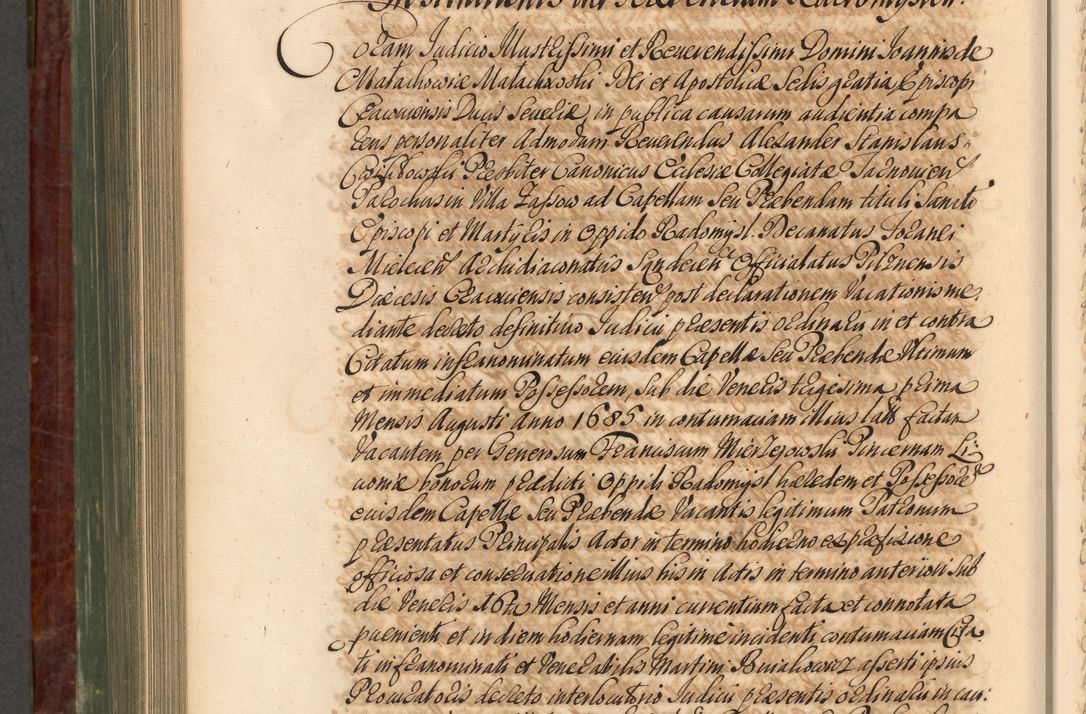 Coram Judicio Illustrissimi et Reuerendissimi Domini Joannis de
Małachowice Małachowski Dei et Apostolicæ Sedis gratia Episcopi
Cracouiensis Ducis Seueriæ, in publica causarum audientia compa
rens personaliter Admodum Reuerendus Alexander Stanislaus
Præsbiter Canonicus Ecclesiæ Collegiatæ Tarnouien
Parochus in Villa Zassow ad Capellam Seu Præbendam tituli Sancti
Episcopi et Martyris in Oppido Radomysl. Decanatus Foranei
Mielecen Archidiaconatus Sandecen Officialatus Pilznensis
Diæcesis Cracouiensis consisten post declarationem Vacationis me-
diante decreto definitiuo Judicii præsentis ordinarii in et contra
Citatum infranominatum eiusdem Capellæ Seu Præbendæ Vltimum
et immediatum Possessorem, sub die Veneris trigesima prima
Mensis Augusti Anno 1685 in contumaciam illius factam
Vacantem, per Generosum Franciscum Mierzejowski Pincernam Li:
uoniæ bonorum prædicti Oppidi Radomysl hæredem et Possessorem
eiusdem Capellæ Seu Præbendæ Vacantis legitimum Patronum
præsentatus Principalis Actor in termino hodierno ex præfixione
officiosa et conseruatione illius his in Actis in termino anteriori sub
die Veneris 16ta Mensis et anni currentium facta et connotata
pueniente et in diem hodiernam legitime incidenti contumaciam Cita
ti infranominati et Venerabilis Martini asserti ipsius
Procuratoris decreto interlocutorio Judicii præsentis ordinarii in cau: